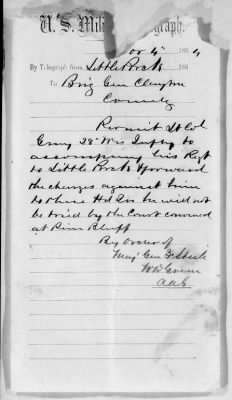 U.S. Mili graph.
ov 4" 186 4
By Telegraph from Little Rock 186
To Brig Gen Clayton
Comdg
Permit Lt Col
Gray 28" Wis Infty to
accompany his Regt
to Little Rock forward
the charges against him
to these Hd Qrs he will not
be tried by the Court convened
at Pine Bluff
By order of
Maj Gen F Steele
W D Green
AAG